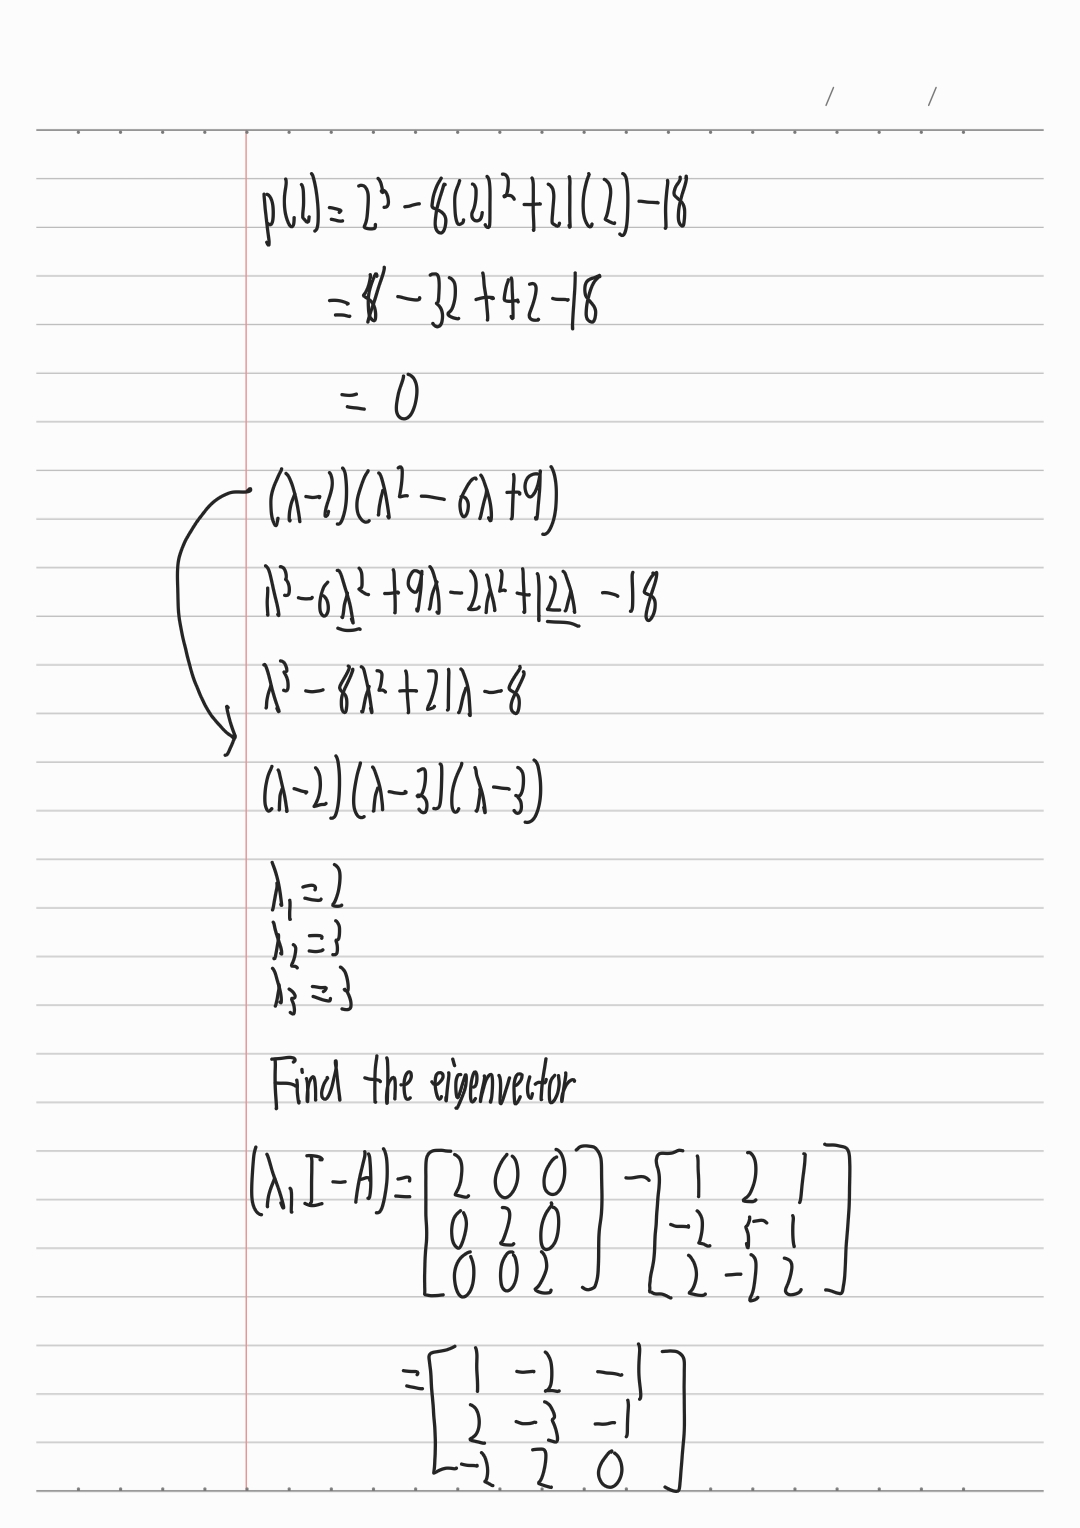 p(2) = 2³ - 8(2)² + 21(2) - 18
= 8 - 32 + 42 - 18
= 0
(λ-2)(λ² - 6λ + 9)
λ³ - 6λ² + 9λ - 2λ² + 12λ - 18
λ³ - 8λ² + 21λ - 8
(λ-2)(λ-3)(λ-3)
λ₁ = 2
λ₂ = 3
λ₃ = 3
Find the eigenvector
(λ₁I - A) = [2 0 0] - [1 2 1]
[0 2 0] [-2 5 1]
[0 0 2] [2 -2 2]
= [1 -2 -1]
[2 -3 -1]
[-2 2 0]